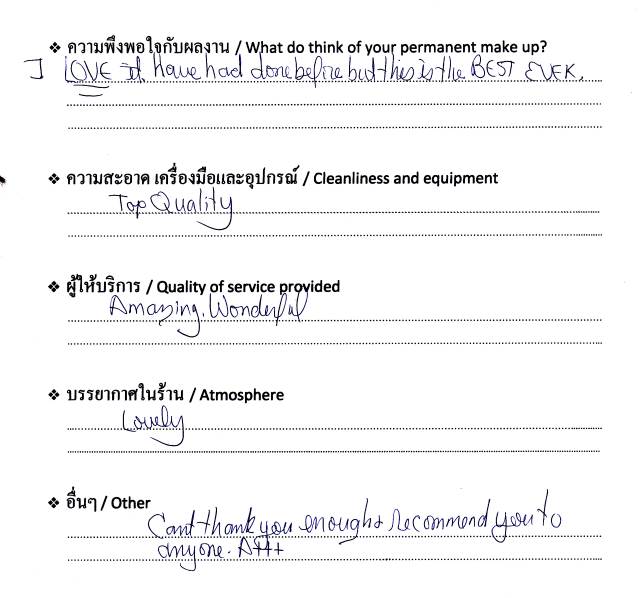 ❖ ความพึงพอใจกับผลงาน / What do think of your permanent make up?
I LOVE it. Have had done before but this is the BEST EVER.
❖ ความสะอาด เครื่องมือและอุปกรณ์ / Cleanliness and equipment
Top Quality
❖ ผู้ให้บริการ / Quality of service provided
Amazing. Wonderful
❖ บรรยากาศในร้าน / Atmosphere
Lovely
❖ อื่นๆ / Other
Cant thank you enough & recommend you to
anyone. A+++